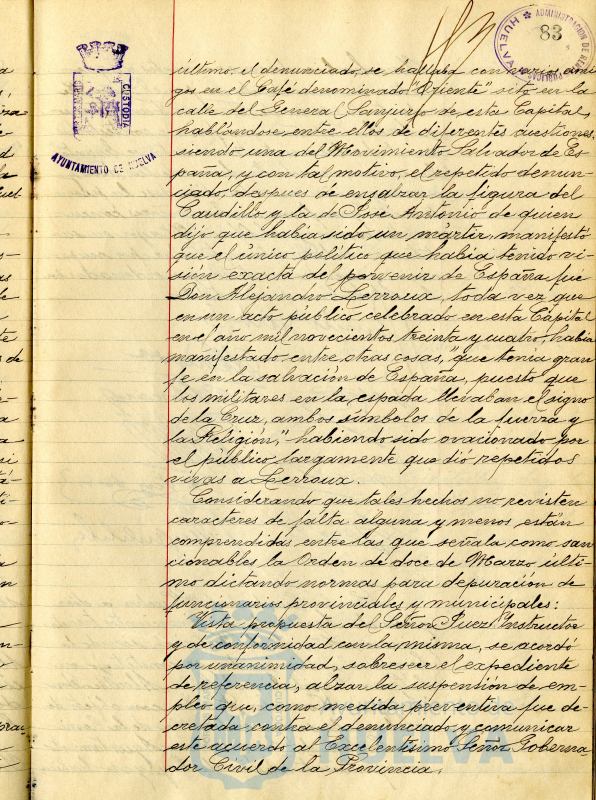 ADMINISTRACION DE
HUELVA
83
CUSTODIA
AYUNTAMIENTO DE HUELVA
último, el denunciado, se hallaba con varios ami-
gos en el Café denominado "Oriente" sito en la
calle del General Sanjurjo de esta Capital,
hablándose entre ellos de diferentes cuestiones,
siendo una del Movimiento Salvador de Es-
paña, y con tal motivo, el repetido denun-
ciado, despues de ensalzar la figura del
Caudillo y la de José Antonio de quien
dijo que había sido un mártir, manifestó
que el único político que había tenido vi-
sión exacta del porvenir de España fue
Don Alejandro Lerroux, toda vez que
en un acto público celebrado en esta Capital
en el año mil novecientos treinta y cuatro, había
manifestado entre otras cosas, "que tenia gran
fe en la salvación de España, puesto que
los militares en la espada llevaban el signo
de la Cruz, ambos símbolos de la fuerza y
la Religión," habiendo sido ovacionado por
el público largamente que dió repetidos
vivas a Lerroux.
Considerando que tales hechos no revisten
caracteres de falta alguna y menos, están
comprendidas entre las que señala como san-
cionables la Orden de doce de Marzo últi-
mo dictando normas para depuración de
funcionarios provinciales y municipales:
Vista propuesta del Señor Juez Instructor
y de conformidad con la misma, se acordó
por unanimidad, sobreseer el expediente
de referencia, alzar la suspensión de em-
pleo que, como medida preventiva fue de-
cretada contra el denunciado y comunicar
este acuerdo al Excelentísimo Señor Goberna-
dor Civil de la Provincia.
HUELVA